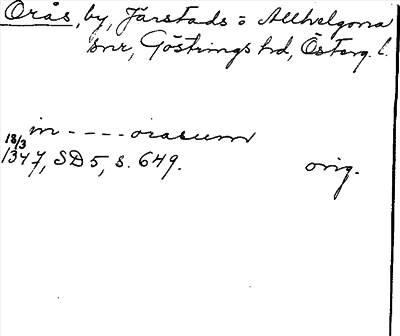 Orås, by, Järstads o Allhelgona
snr, Göstrings hd, Österg. l.
in - - - - orasum
18/3
1347, SD 5, s. 649. orig.